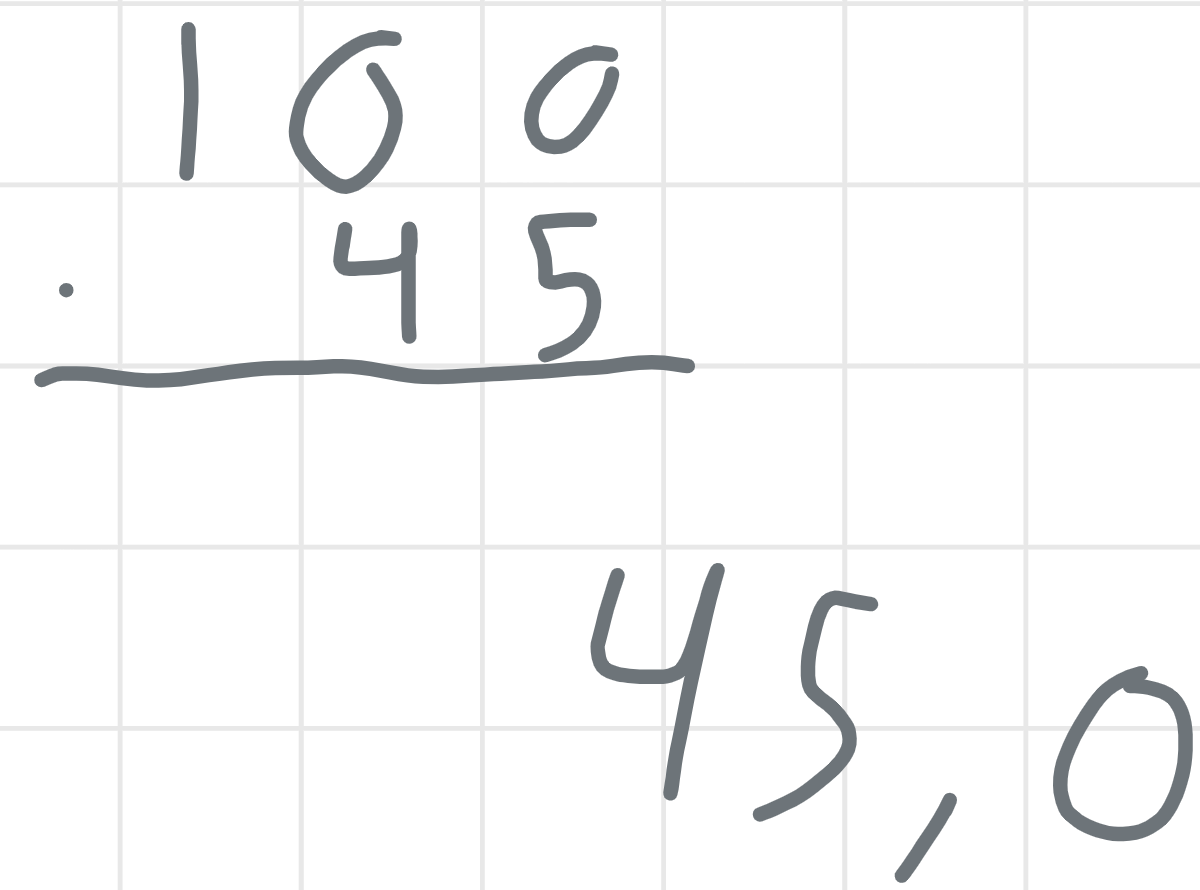 100
· 45
45,0